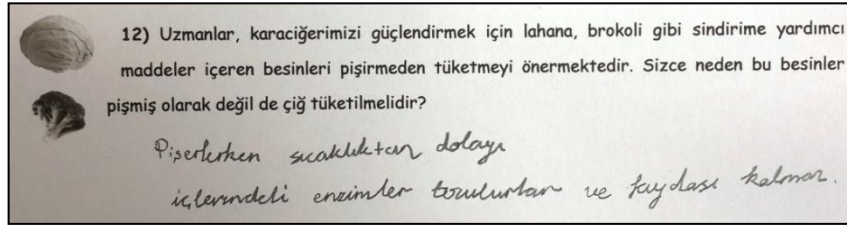 12) Uzmanlar, karaciğerimizi güçlendirmek için lahana, brokoli gibi sindirime yardımcı
maddeler içeren besinleri pişirmeden tüketmeyi önermektedir. Sizce neden bu besinler
pişmiş olarak değil de çiğ tüketilmelidir?
Pişerlerken sıcaklıktan dolayı
içlerindeki enzimler bozulurlar ve faydası kalmaz.